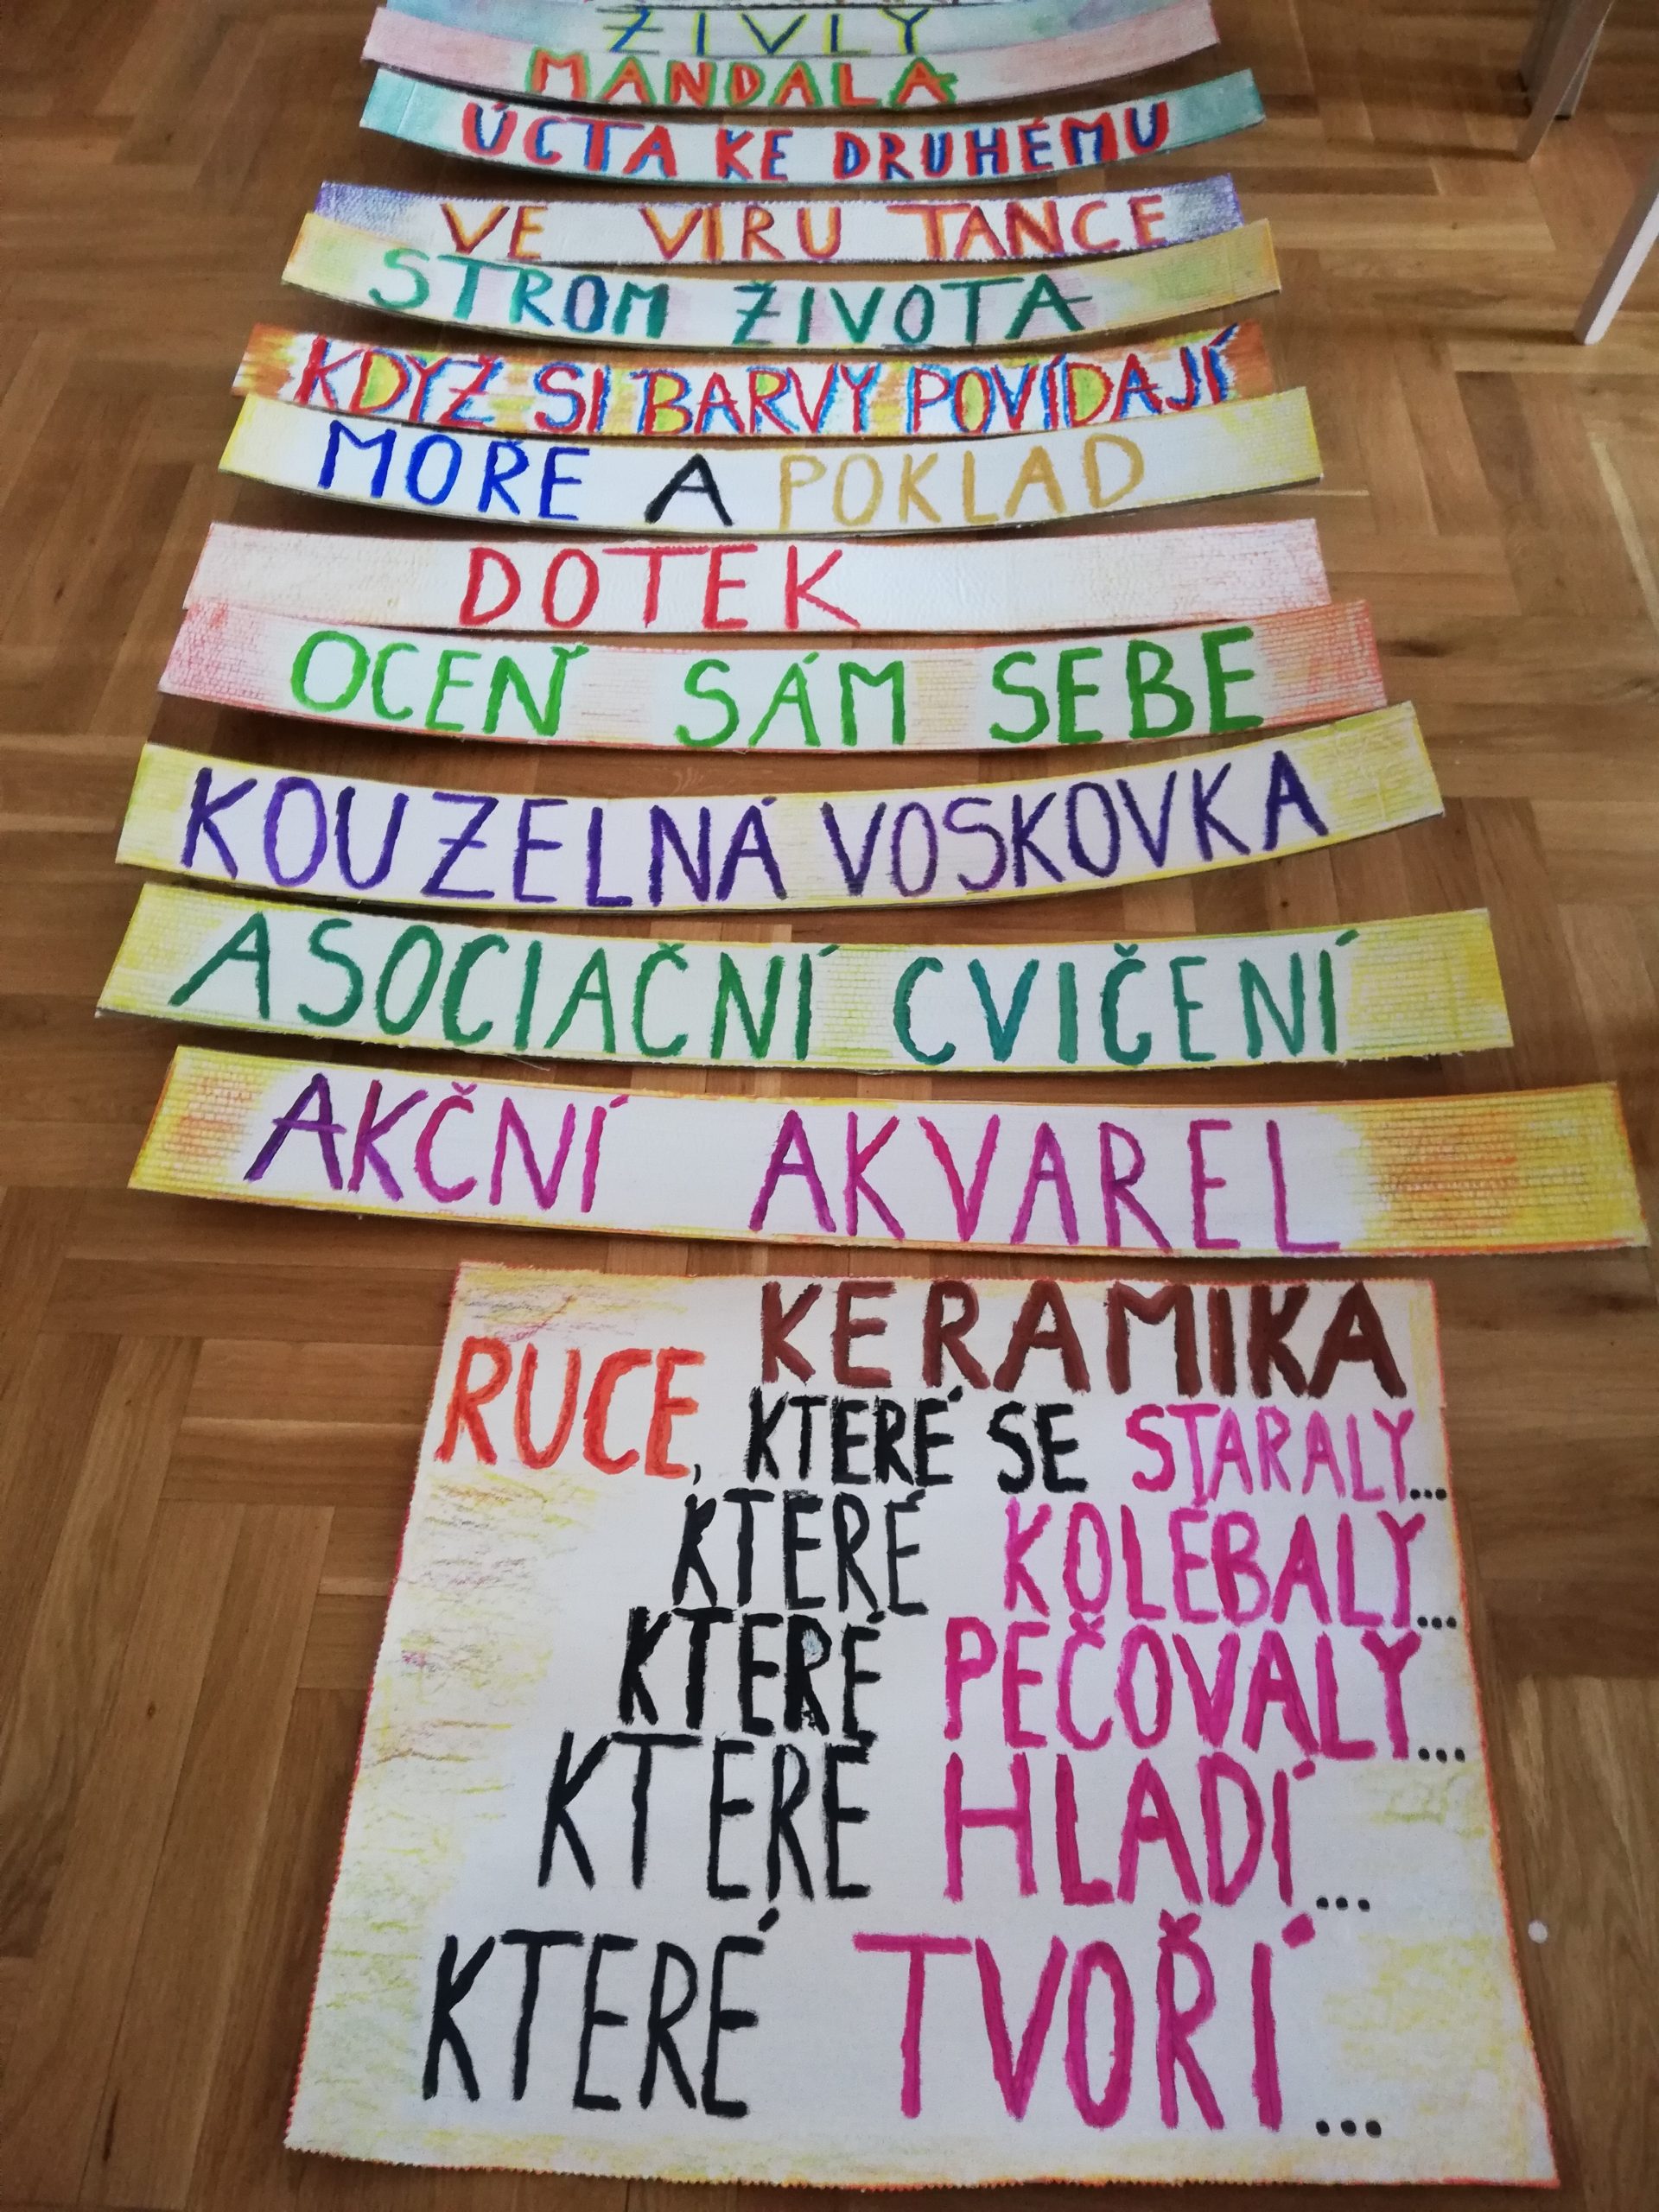 ŽIVLY
MANDALA
ÚCTA KE DRUHÉMU
VE VÍRU TANCE
STROM ŽIVOTA
KDYŽ SI BARVY POVÍDAJÍ
MOŘE A POKLAD
DOTEK
OCEŇ SÁM SEBE
KOUZELNÁ VOSKOVKA
ASOCIAČNÍ CVIČENÍ
AKČNÍ AKVAREL
KERAMIKA
RUCE, KTERÉ SE STARALY...
KTERÉ KOLÉBALY...
KTERÉ PEČOVALY...
KTERÉ HLADÍ...
KTERÉ TVOŘÍ...